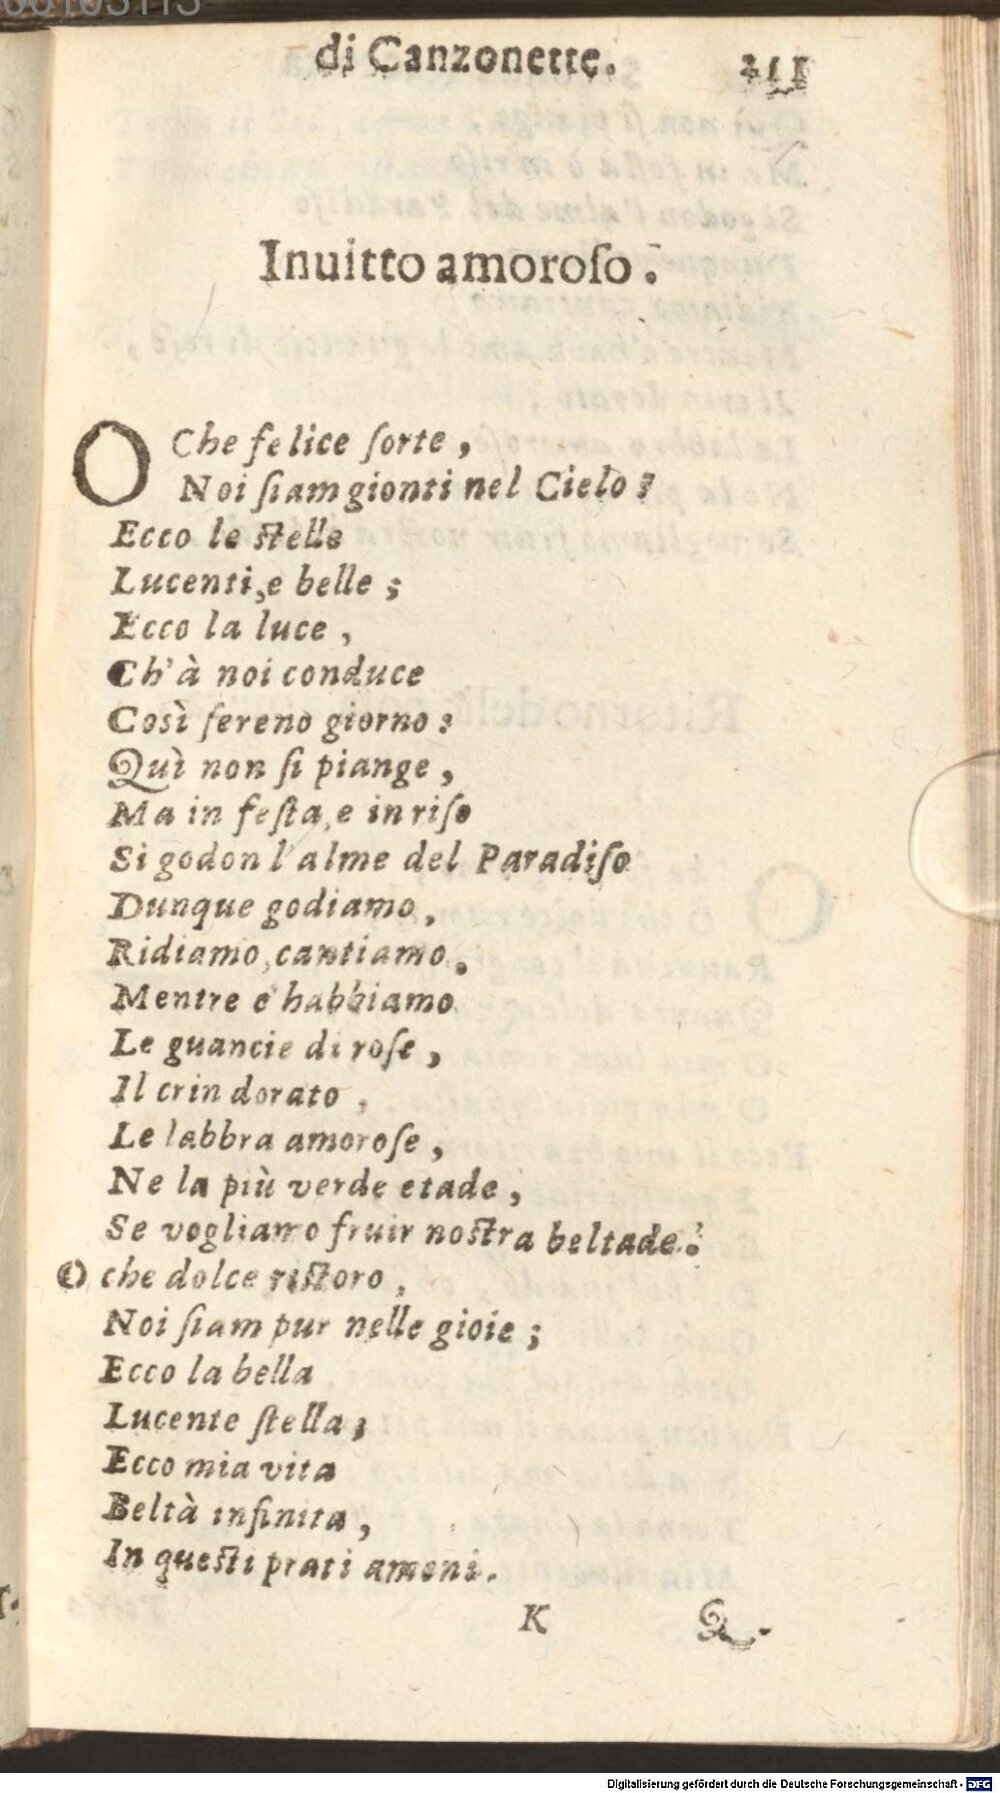 di Canzonette. 211
Inuitto amoroſo.
O Che felice ſorte,
Noi ſiam gionti nel Cielo?
Ecco le ſtelle
Lucenti, e belle;
Ecco la luce,
Ch'à noi conduce
Così ſereno giorno:
Quì non ſi piange,
Ma in feſta, e in riſo
Si godon l'alme del Paradiſo
Dunque godiamo,
Ridiamo, cantiamo.
Mentre c'habbiamo
Le guancie di roſe,
Il crin dorato,
Le labbra amoroſe,
Ne la più verde etade,
Se vogliamo fruir noſtra beltade.
O che dolce riſtoro,
Noi ſiam pur nelle gioie;
Ecco la bella
Lucente ſtella;
Ecco mia vita
Beltà infinita,
In queſti prati ameni.
K Q.
Digitalisierung gefördert durch die Deutsche Forschungsgemeinschaft - DFG